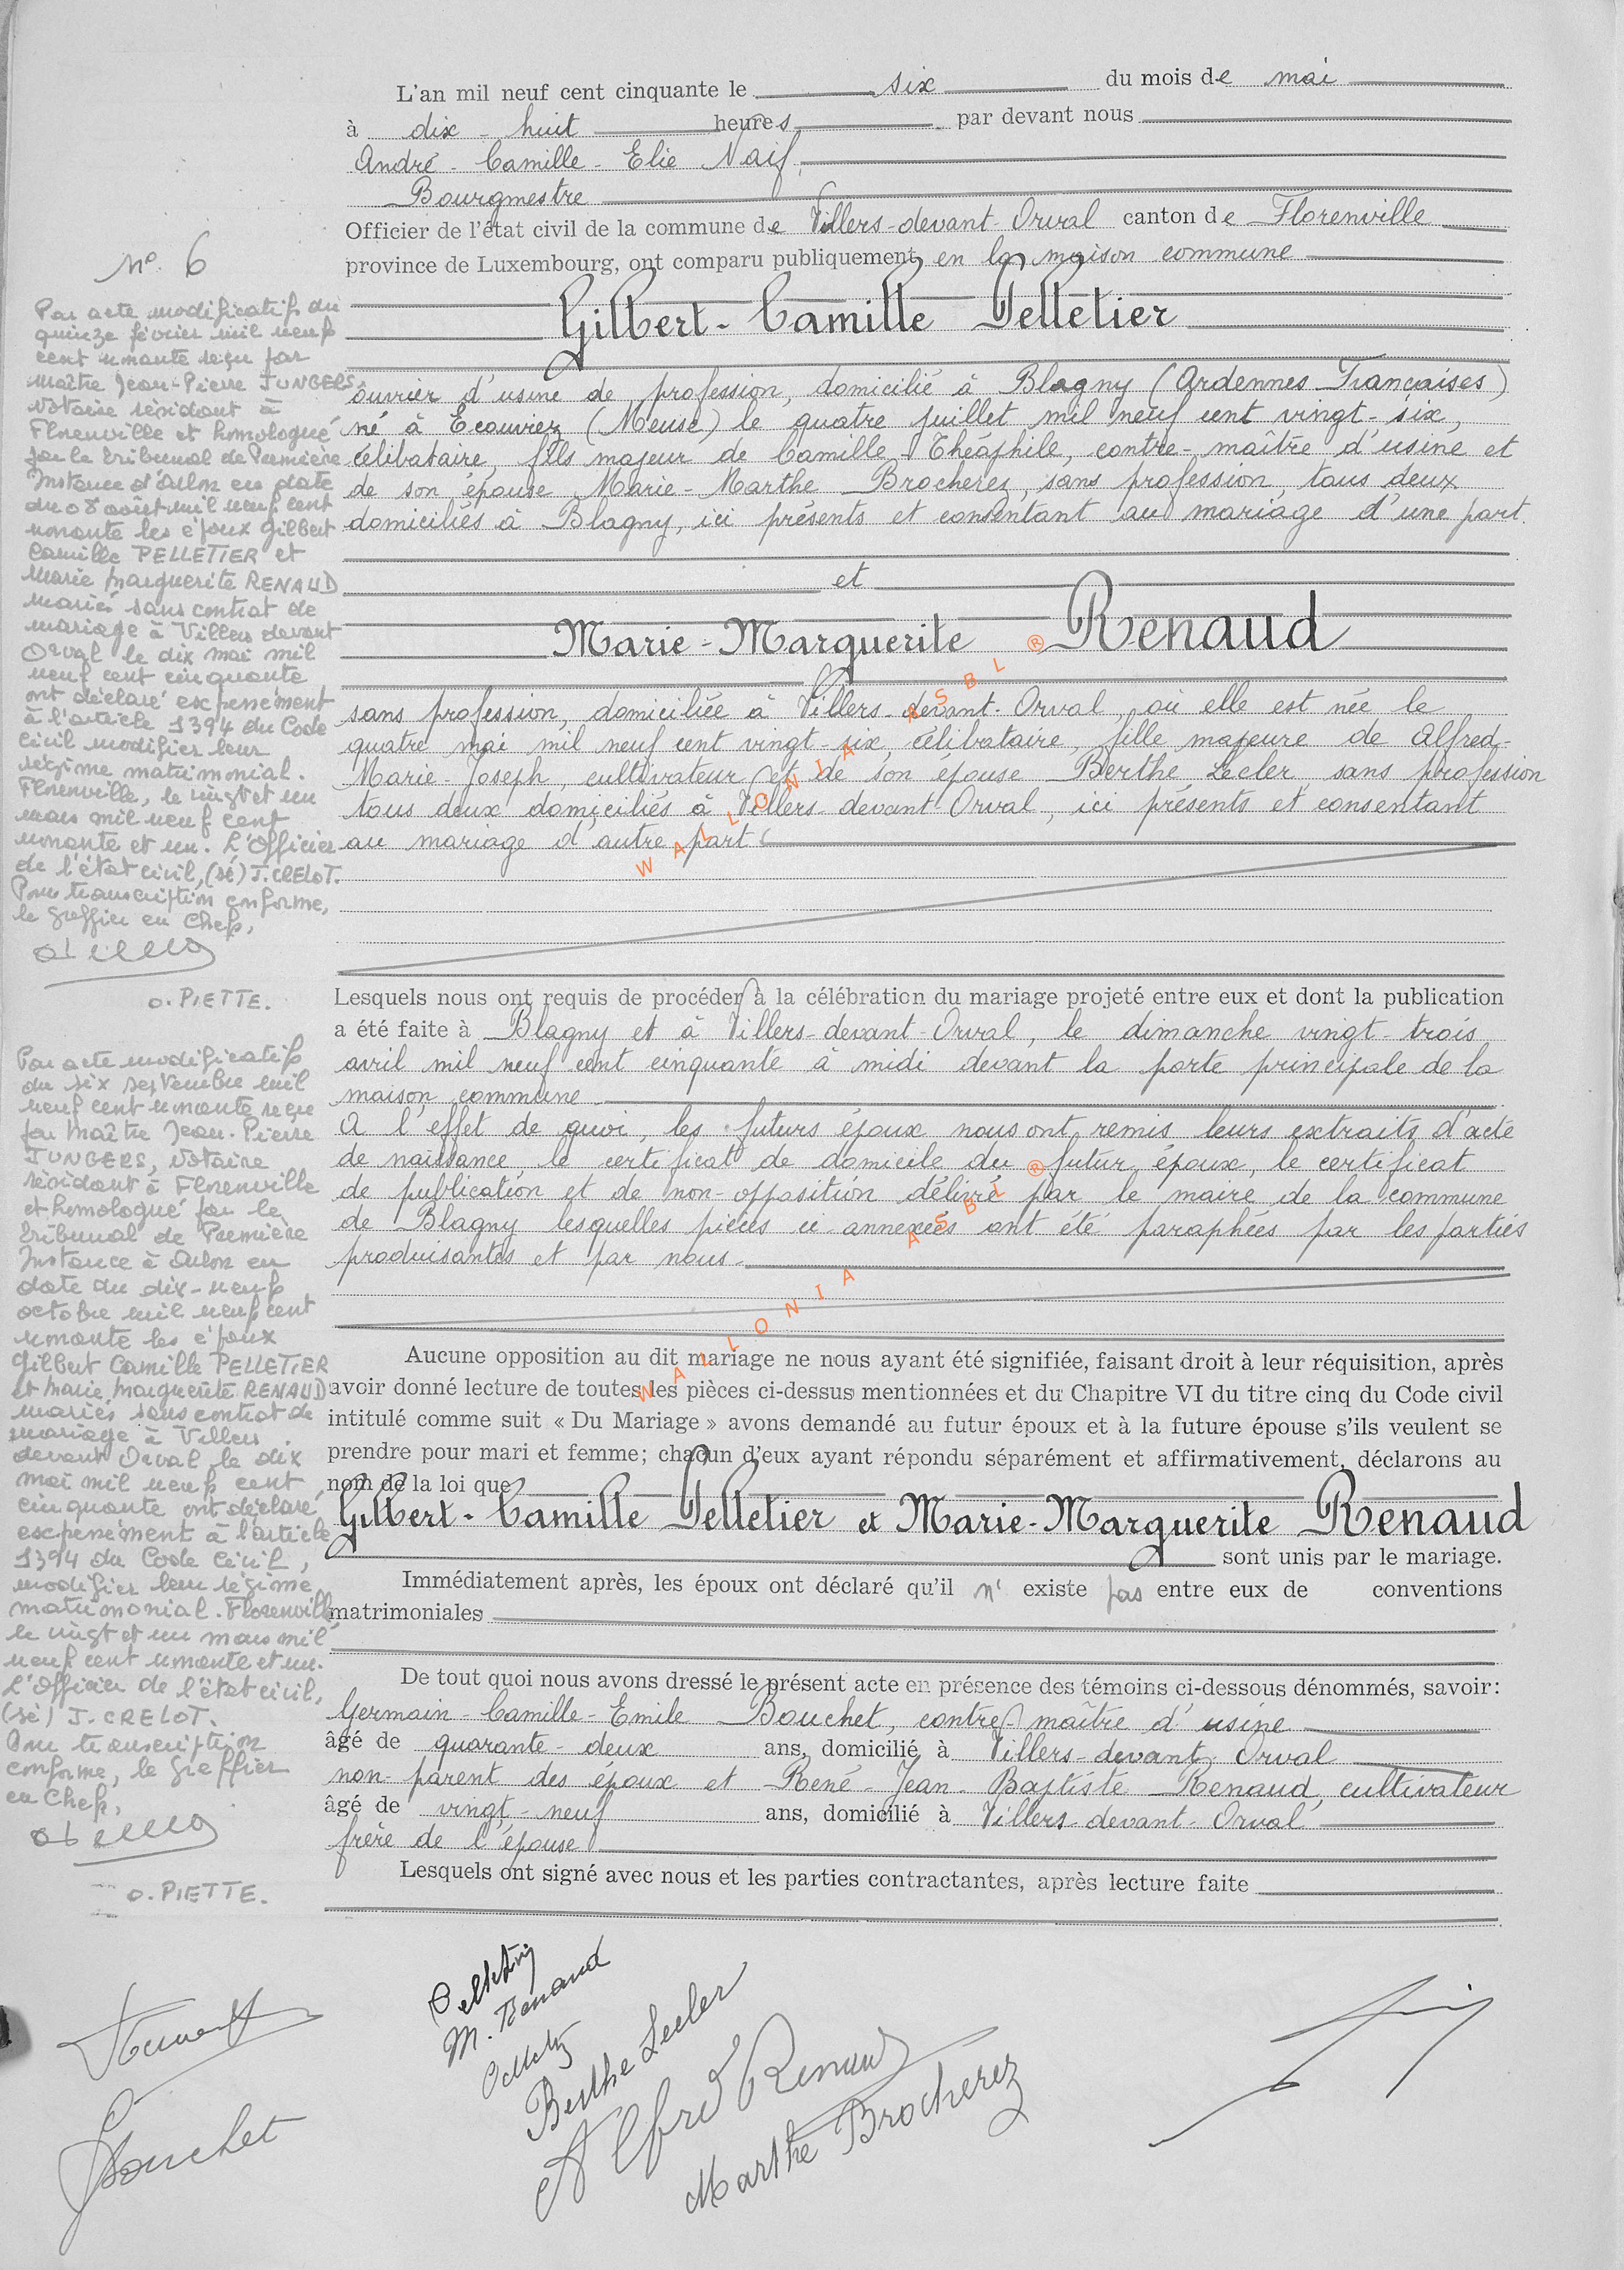 L'an mil neuf cent cinquante le six du mois de mai
à dix-huit heures par devant nous
André-Camille-Elie Naif,
Bourgmestre
Officier de l'état civil de la commune de Villers-devant-Orval canton de Florenville
province de Luxembourg, ont comparu publiquement en la maison commune
Gilbert-Camille Pelletier
ouvrier d'usine de profession, domicilié à Blagny (Ardennes Françaises)
né à Ecouviez (Meuse) le quatre juillet mil neuf cent vingt-six,
célibataire, fils majeur de Camille-Théophile, contre-maître d'usine et
de son épouse Marie-Marthe Brocherez, sans profession, tous deux
domiciliés à Blagny, ici présents et consentant au mariage d'une part.
et
Marie-Marguerite Renaud
sans profession, domiciliée à Villers-devant-Orval, où elle est née le
quatre mai mil neuf cent vingt-six, célibataire, fille majeure de Alfred-
Marie-Joseph, cultivateur et de son épouse Berthe Lecler sans profession
tous deux domiciliés à Villers-devant-Orval, ici présents et consentant
au mariage d'autre part
Lesquels nous ont requis de procéder à la célébration du mariage projeté entre eux et dont la publication
a été faite à Blagny et à Villers-devant-Orval, le dimanche vingt-trois
avril mil neuf cent cinquante à midi devant la porte principale de la
maison commune
A l'effet de quoi, les futurs époux nous ont remis leurs extraits d'acte
de naissance, le certificat de domicile du futur époux, le certificat
de publication et de non-opposition délivré par le maire de la commune
de Blagny lesquelles pièces ci-annexées ont été paraphées par les parties
produisantes et par nous.
Aucune opposition au dit mariage ne nous ayant été signifiée, faisant droit à leur réquisition, après
avoir donné lecture de toutes les pièces ci-dessus mentionnées et du Chapitre VI du titre cinq du Code civil
intitulé comme suit « Du Mariage » avons demandé au futur époux et à la future épouse s'ils veulent se
prendre pour mari et femme; chacun d'eux ayant répondu séparément et affirmativement, déclarons au
nom de la loi que
Gilbert-Camille Pelletier et Marie-Marguerite Renaud
sont unis par le mariage.
Immédiatement après, les époux ont déclaré qu'il n' existe pas entre eux de conventions
matrimoniales
De tout quoi nous avons dressé le présent acte en présence des témoins ci-dessous dénommés, savoir:
Germain-Camille-Emile Bouchet, contre-maître d'usine
âgé de quarante-deux ans, domicilié à Villers-devant-Orval
non-parent des époux et René-Jean-Baptiste Renaud, cultivateur
âgé de vingt-neuf ans, domicilié à Villers-devant-Orval
frère de l'épouse
Lesquels ont signé avec nous et les parties contractantes, après lecture faite
N° 6
Par acte modificatif du
quinze février mil neuf
cent nonante reçu par
Maître Jean-Pierre JUNGERS,
Notaire résidant à
Florenville et homologué
par le tribunal de Première
Instance d'Arlon en date
du 08 août mil neuf cent
nonante les époux Gilbert
Camille PELLETIER et
Marie Marguerite RENAUD
mariés sans contrat de
mariage à Villers devant
Orval le dix mai mil
neuf cent cinquante
ont déclaré expressément
à l'article 1394 du Code
civil modifier leur
régime matrimonial.
Florenville, le vingt et un
mars mil neuf cent
nonante et un. L'Officier
de l'état civil, (sé) J. CRELOT.
Pour transcription conforme,
le Greffier en Chef,
O. PIETTE.
Par acte modificatif
du six septembre mil
neuf cent nonante reçu
par Maître Jean-Pierre
JUNGERS, Notaire
résidant à Florenville
et homologué par le
tribunal de Première
Instance à Arlon en
date du dix-neuf
octobre mil neuf cent
nonante les époux
Gilbert Camille PELLETIER
et Marie Marguerite RENAUD
mariés sans contrat de
mariage à Villers
devant Orval le dix
mai mil neuf cent
cinquante ont déclaré
expressément à l'article
1394 du Code Civil,
modifier leur régime
matrimonial. Florenville
le vingt et un mars mil
neuf cent nonante et un.
L'Officier de l'état civil,
(sé) J. CRELOT.
Pour transcription
conforme, le Greffier
en Chef,
O. PIETTE.
Pelletier
M. Renaud
Berthe Lecler
Alfred Renaud
Marthe Brocherez
Bouchet
WALLONIA ASBL ®
WALLONIA ASBL ®